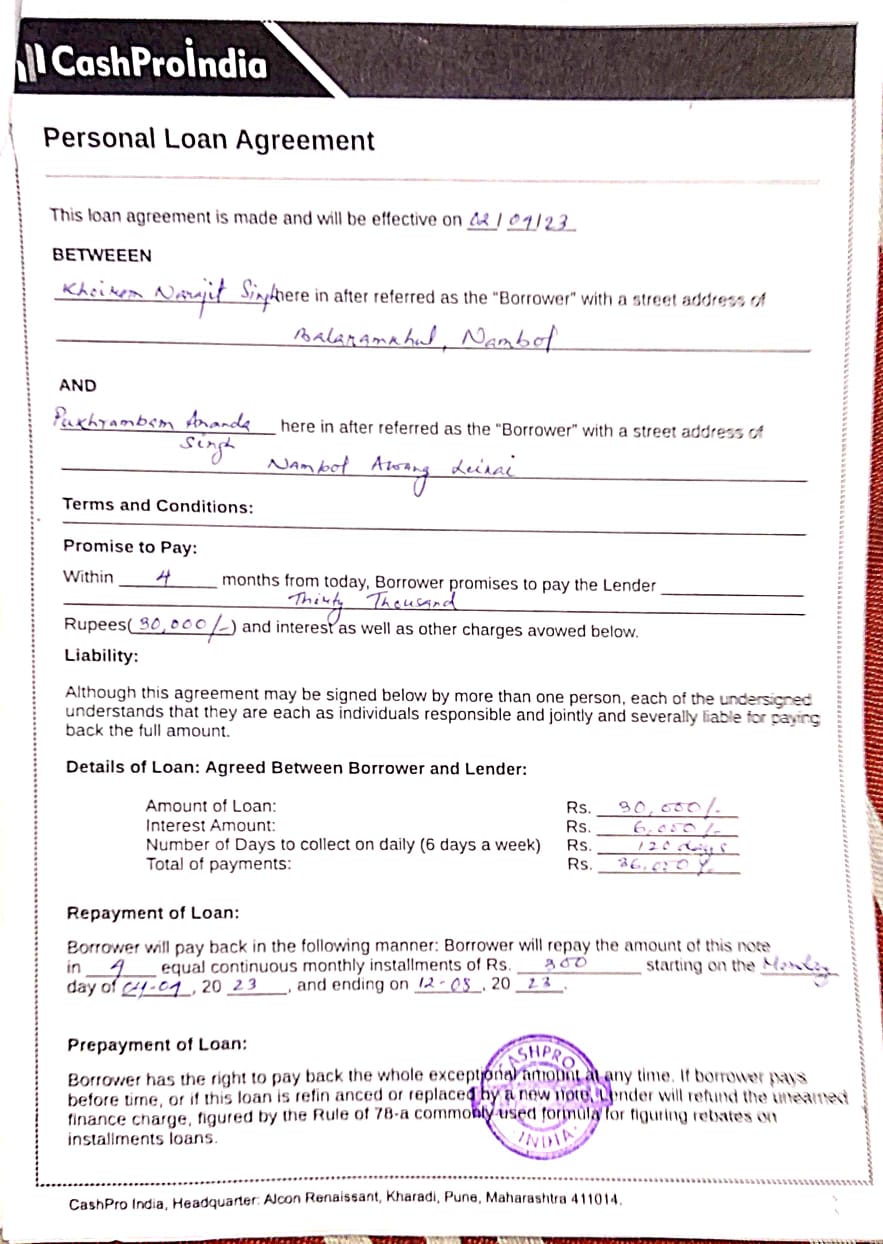 CashProIndia
Personal Loan Agreement
This loan agreement is made and will be effective on 02/09/23
BETWEEEN
Khoirom Narajit Singh here in after referred as the “Borrower” with a street address of
Nambol
AND
Pukhrambam Ananda here in after referred as the “Borrower” with a street address of
Singh
Nambol Awang Leikai
Terms and Conditions:
Promise to Pay:
Within 4 months from today, Borrower promises to pay the Lender
Thirty Thousand
Rupees( 30,000/- ) and interest as well as other charges avowed below.
Liability:
Although this agreement may be signed below by more than one person, each of the undersigned
understands that they are each as individuals responsible and jointly and severally liable for paying
back the full amount.
Details of Loan: Agreed Between Borrower and Lender:
Amount of Loan: Rs. 30,000/-
Interest Amount: Rs. 6,000/-
Number of Days to collect on daily (6 days a week) Rs. 120 days
Total of payments: Rs. 36,000/-
Repayment of Loan:
Borrower will pay back in the following manner: Borrower will repay the amount of this note
in equal continuous monthly installments of Rs. 300 starting on the Monday
day of 04-09, 20 23, and ending on 12-05, 20 23.
Prepayment of Loan:
Borrower has the right to pay back the whole exceptional amount at any time. If borrower pays
before time, or if this loan is refin anced or replaced by a new note, Lender will refund the unearned
finance charge, figured by the Rule of 78-a commonly used formula for figuring rebates on
installments loans.
CASHPRO
INDIA
CashPro India, Headquarter: Alcon Renaissant, Kharadi, Pune, Maharashtra 411014.